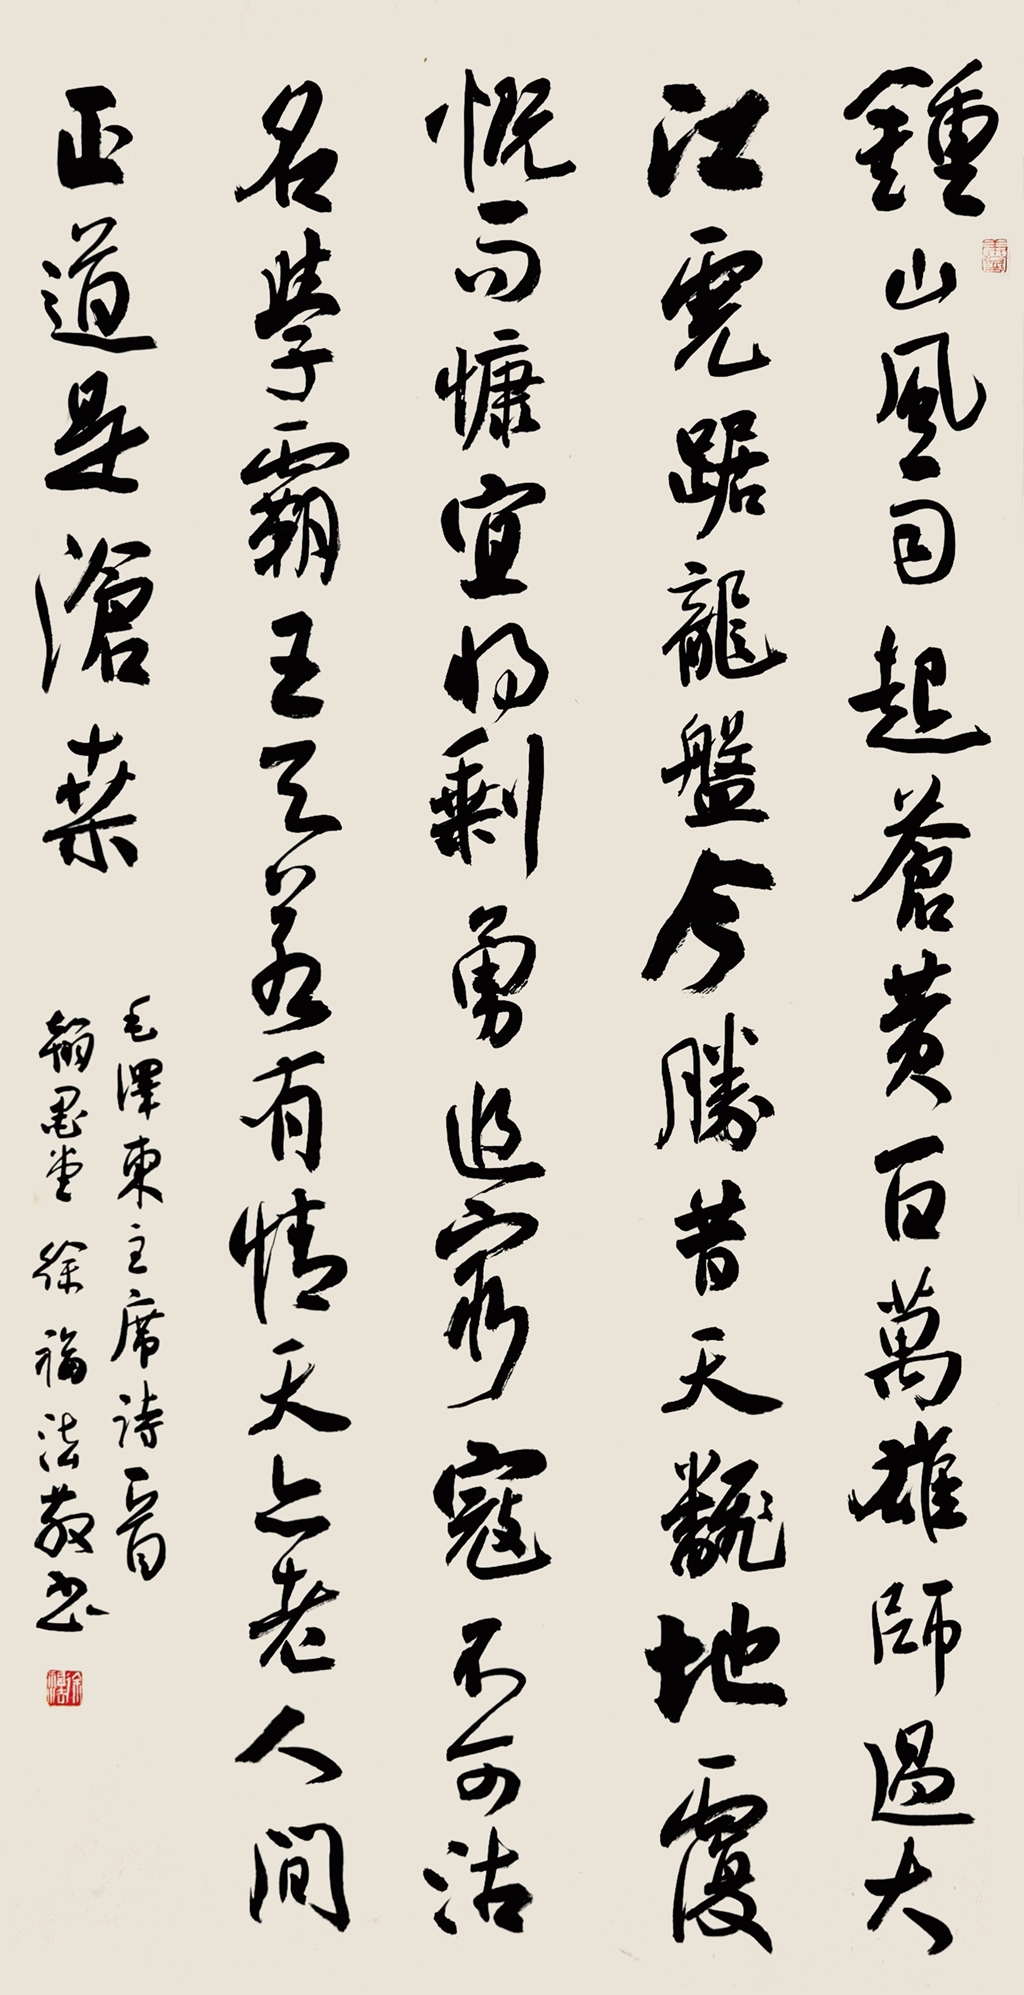 鍾山風雨起蒼黄百萬雄師過大
江虎踞龍盤今勝昔天翻地覆
慨而慷宜將剩勇追窮寇不可沽
名學霸王天若有情天亦老人間
正道是滄桑
毛澤東主席詩一首
翰墨堂徐福法敬書